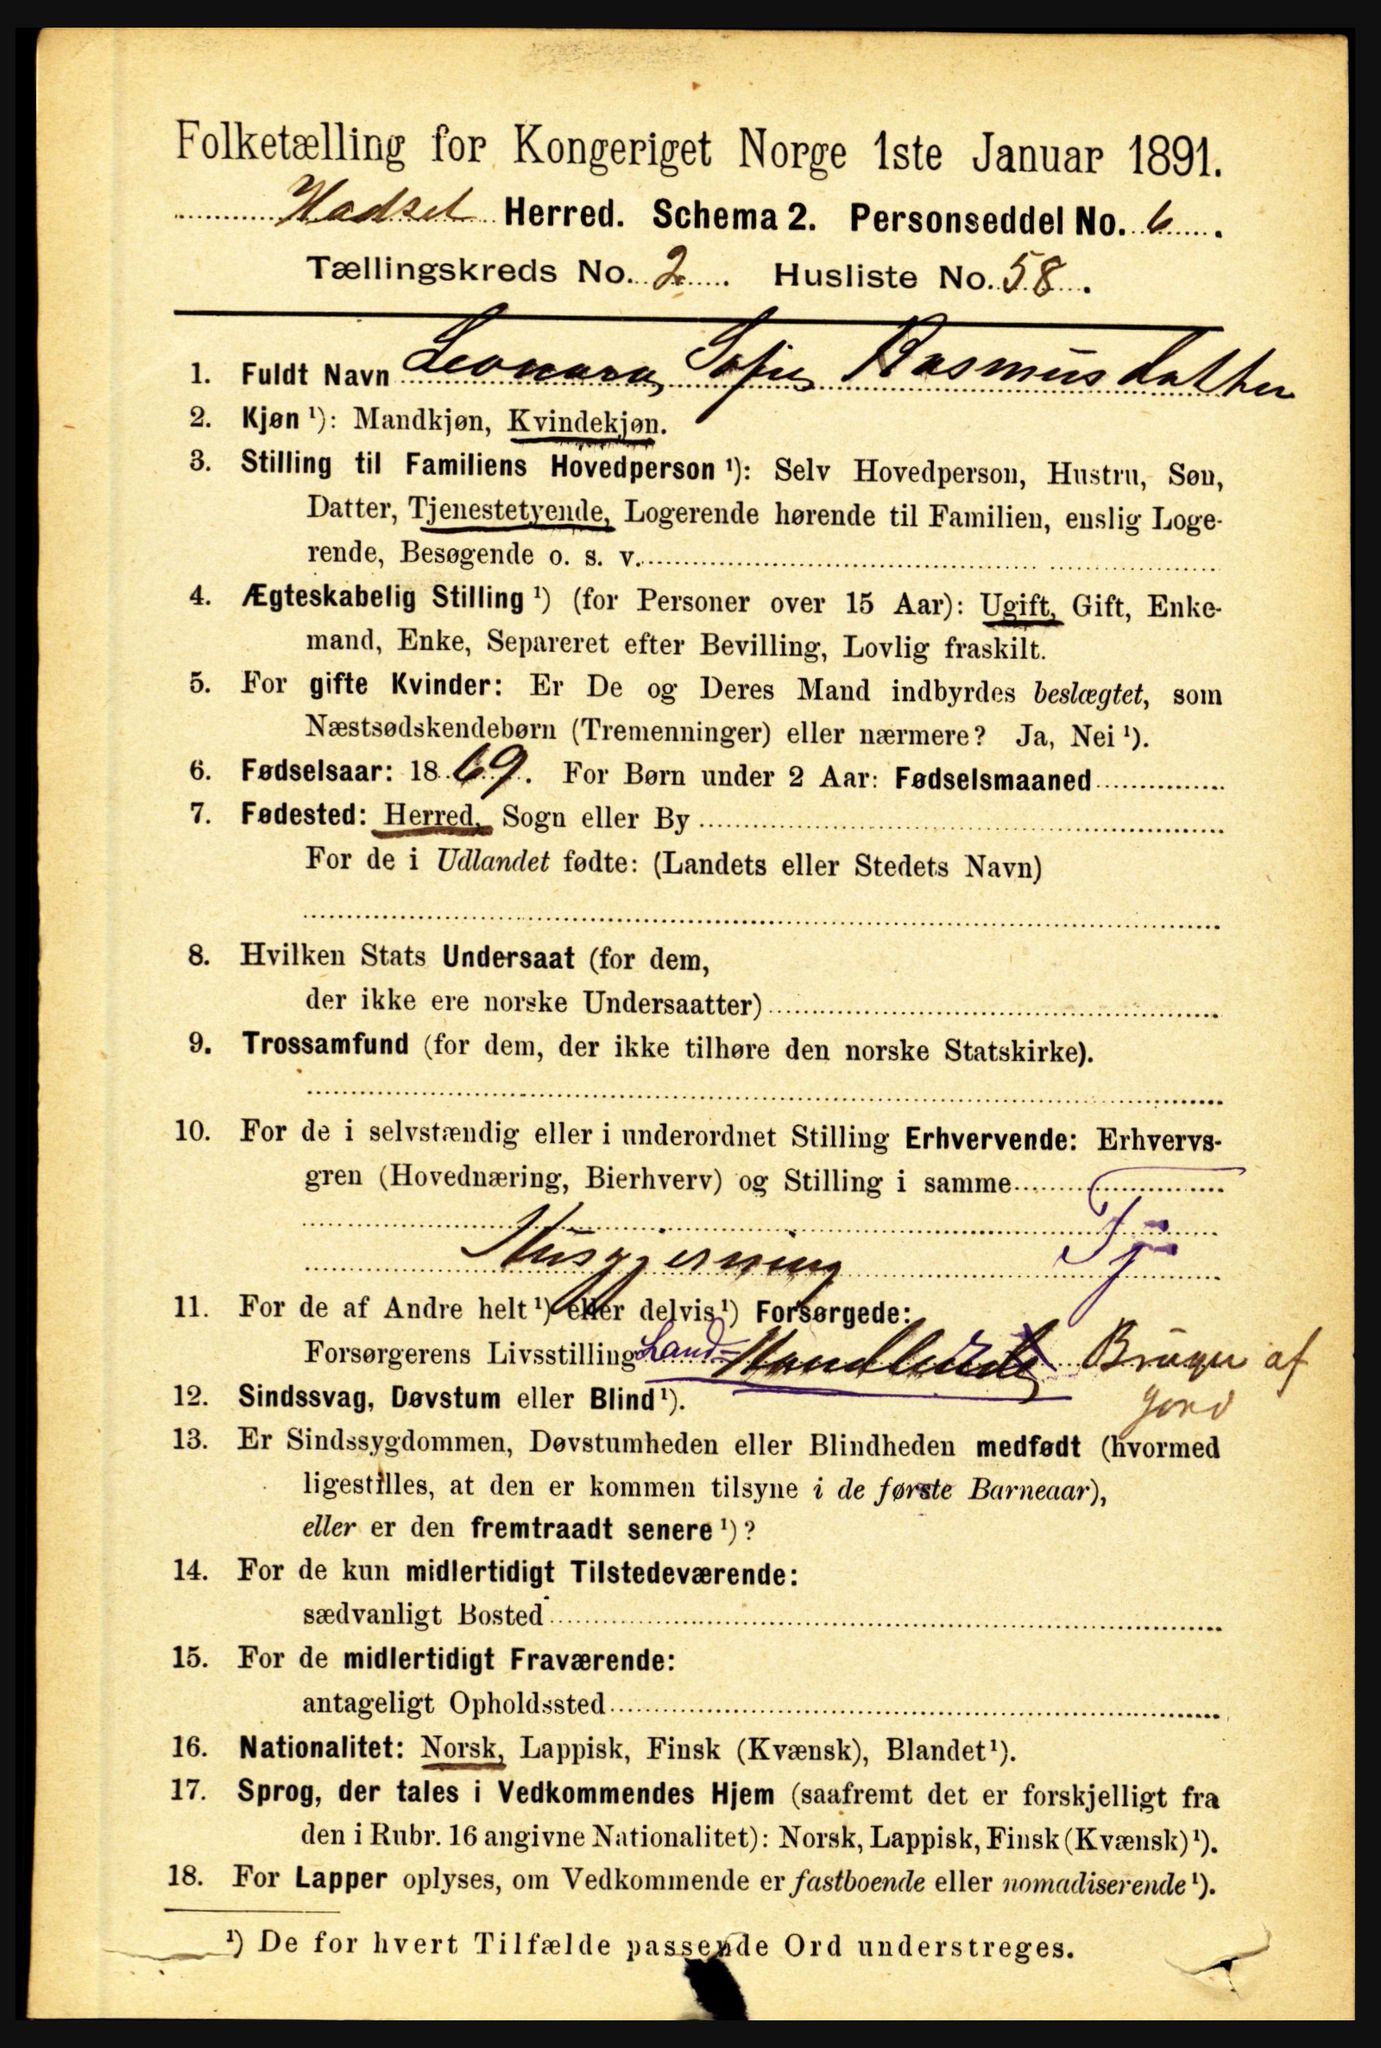 Folketælling for Kongeriget Norge 1ste Januar 1891.
Hadsel Herred. Schema 2. Personseddel No. 6.
Tællingskreds No. 2. Husliste No. 58.
1. Fuldt Navn Leonara Sofie Rasmusdatter
2. Kjøn ¹): Mandkjøn, Kvindekjøn.
3. Stilling til Familiens Hovedperson ¹): Selv Hovedperson, Hustru, Søn,
Datter, Tjenestetyende, Logerende hørende til Familien, enslig Loge-
rende, Besøgende o. s. v.
4. Ægteskabelig Stilling ¹) (for Personer over 15 Aar): Ugift, Gift, Enke-
mand, Enke, Separeret efter Bevilling, Lovlig fraskilt.
5. For gifte Kvinder: Er De og Deres Mand indbyrdes beslægtet, som
Næstsødskendebørn (Tremenninger) eller nærmere? Ja, Nei ¹).
6. Fødselsaar: 1869. For Børn under 2 Aar: Fødselsmaaned
7. Fødested: Herred, Sogn eller By
For de i Udlandet fødte: (Landets eller Stedets Navn)
8. Hvilken Stats Undersaat (for dem,
der ikke ere norske Undersaatter)
9. Trossamfund (for dem, der ikke tilhøre den norske Statskirke).
10. For de i selvstændig eller i underordnet Stilling Erhvervende: Erhvervs-
gren (Hovednæring, Bierhverv) og Stilling i samme
Tj
Husgjerning
11. For de af Andre helt ¹) eller delvis ¹) Forsørgede:
Forsørgerens Livsstilling Land= Bruger af
Jord
12. Sindssvag, Døvstum eller Blind ¹).
13. Er Sindssygdommen, Døvstumheden eller Blindheden medfødt (hvormed
ligestilles, at den er kommen tilsyne i de første Barneaar),
eller er den fremtraadt senere ¹)?
14. For de kun midlertidigt Tilstedeværende:
sædvanligt Bosted
15. For de midlertidigt Fraværende:
antageligt Opholdssted
16. Nationalitet: Norsk, Lappisk, Finsk (Kvænsk), Blandet ¹).
17. Sprog, der tales i Vedkommendes Hjem (saafremt det er forskjelligt fra
den i Rubr. 16 angivne Nationalitet): Norsk, Lappisk, Finsk (Kvænsk) ¹).
18. For Lapper oplyses, om Vedkommende er fastboende eller nomadiserende ¹).
¹) De for hvert Tilfælde passende Ord understreges.